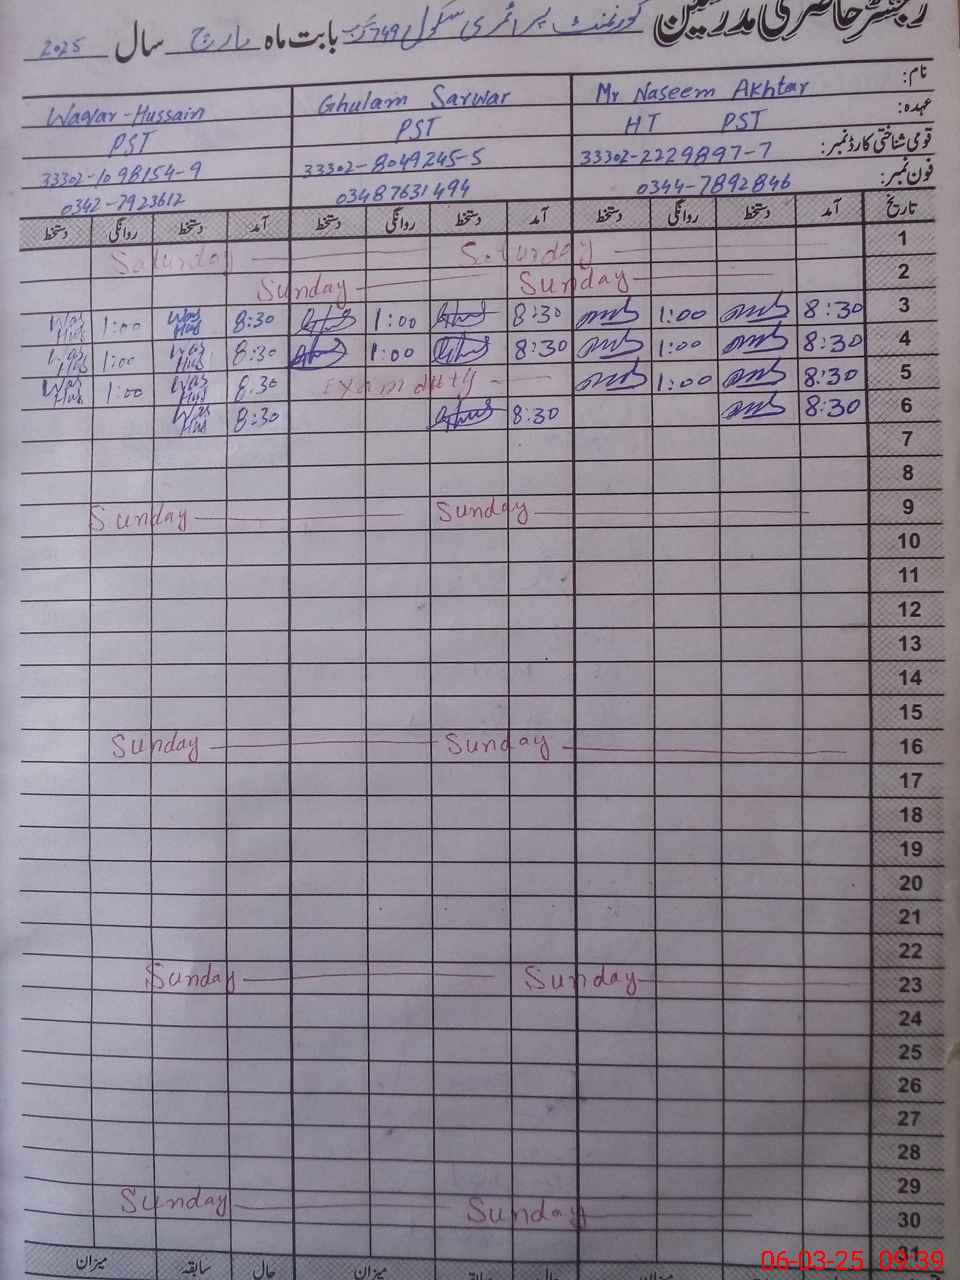 رجسٹر حاضری مدرسین گورنمنٹ پرائمری سکول 749 گ ب بابت ماہ مارچ سال 2025
نام: Mr Naseem Akhtar Ghulam Sarwar Waqar-Hussain
عہدہ: HT PST PST PST
قومی شناختی کارڈ نمبر: 33302-2229897-7 33302-8049245-5 33302-1098154-9
فون نمبر: 0344-7892846 03487631494 0342-7923612
تاریخ آمد دستخط روانگی دستخط آمد دستخط روانگی دستخط آمد دستخط روانگی دستخط
1 Saturday Saturday
2 Sunday Sunday
3 8:30 1:00 8:30 1:00 8:30 Was Hus 1:00 Was Hus
4 8:30 1:00 8:30 1:00 8:30 Was Hus 1:00 Was Hus
5 8:30 1:00 Exam duty 8:30 Was Hus 1:00 Was Hus
6 8:30 8:30 8:30 Was Hus
7
8
9 Sunday Sunday
10
11
12
13
14
15
16 Sunday Sunday
17
18
19
20
21
22
23 Sunday Sunday
24
25
26
27
28
29
30 Sunday Sunday
31
میزان حال سابقہ میزان
06-03-25 09:39